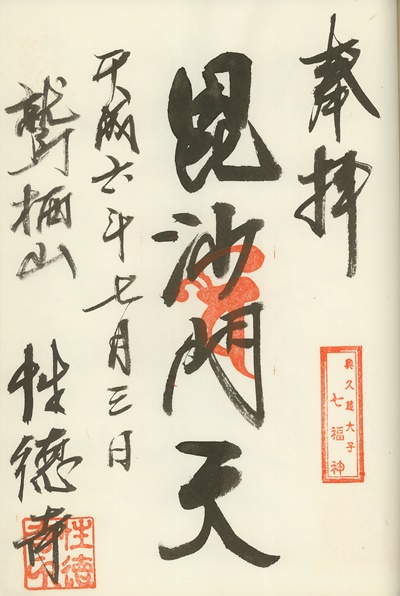 奉拝
奥久慈大子
七福神
毘沙門天
平成六年七月三日
鷲栖山
性徳寺
性徳
寺印